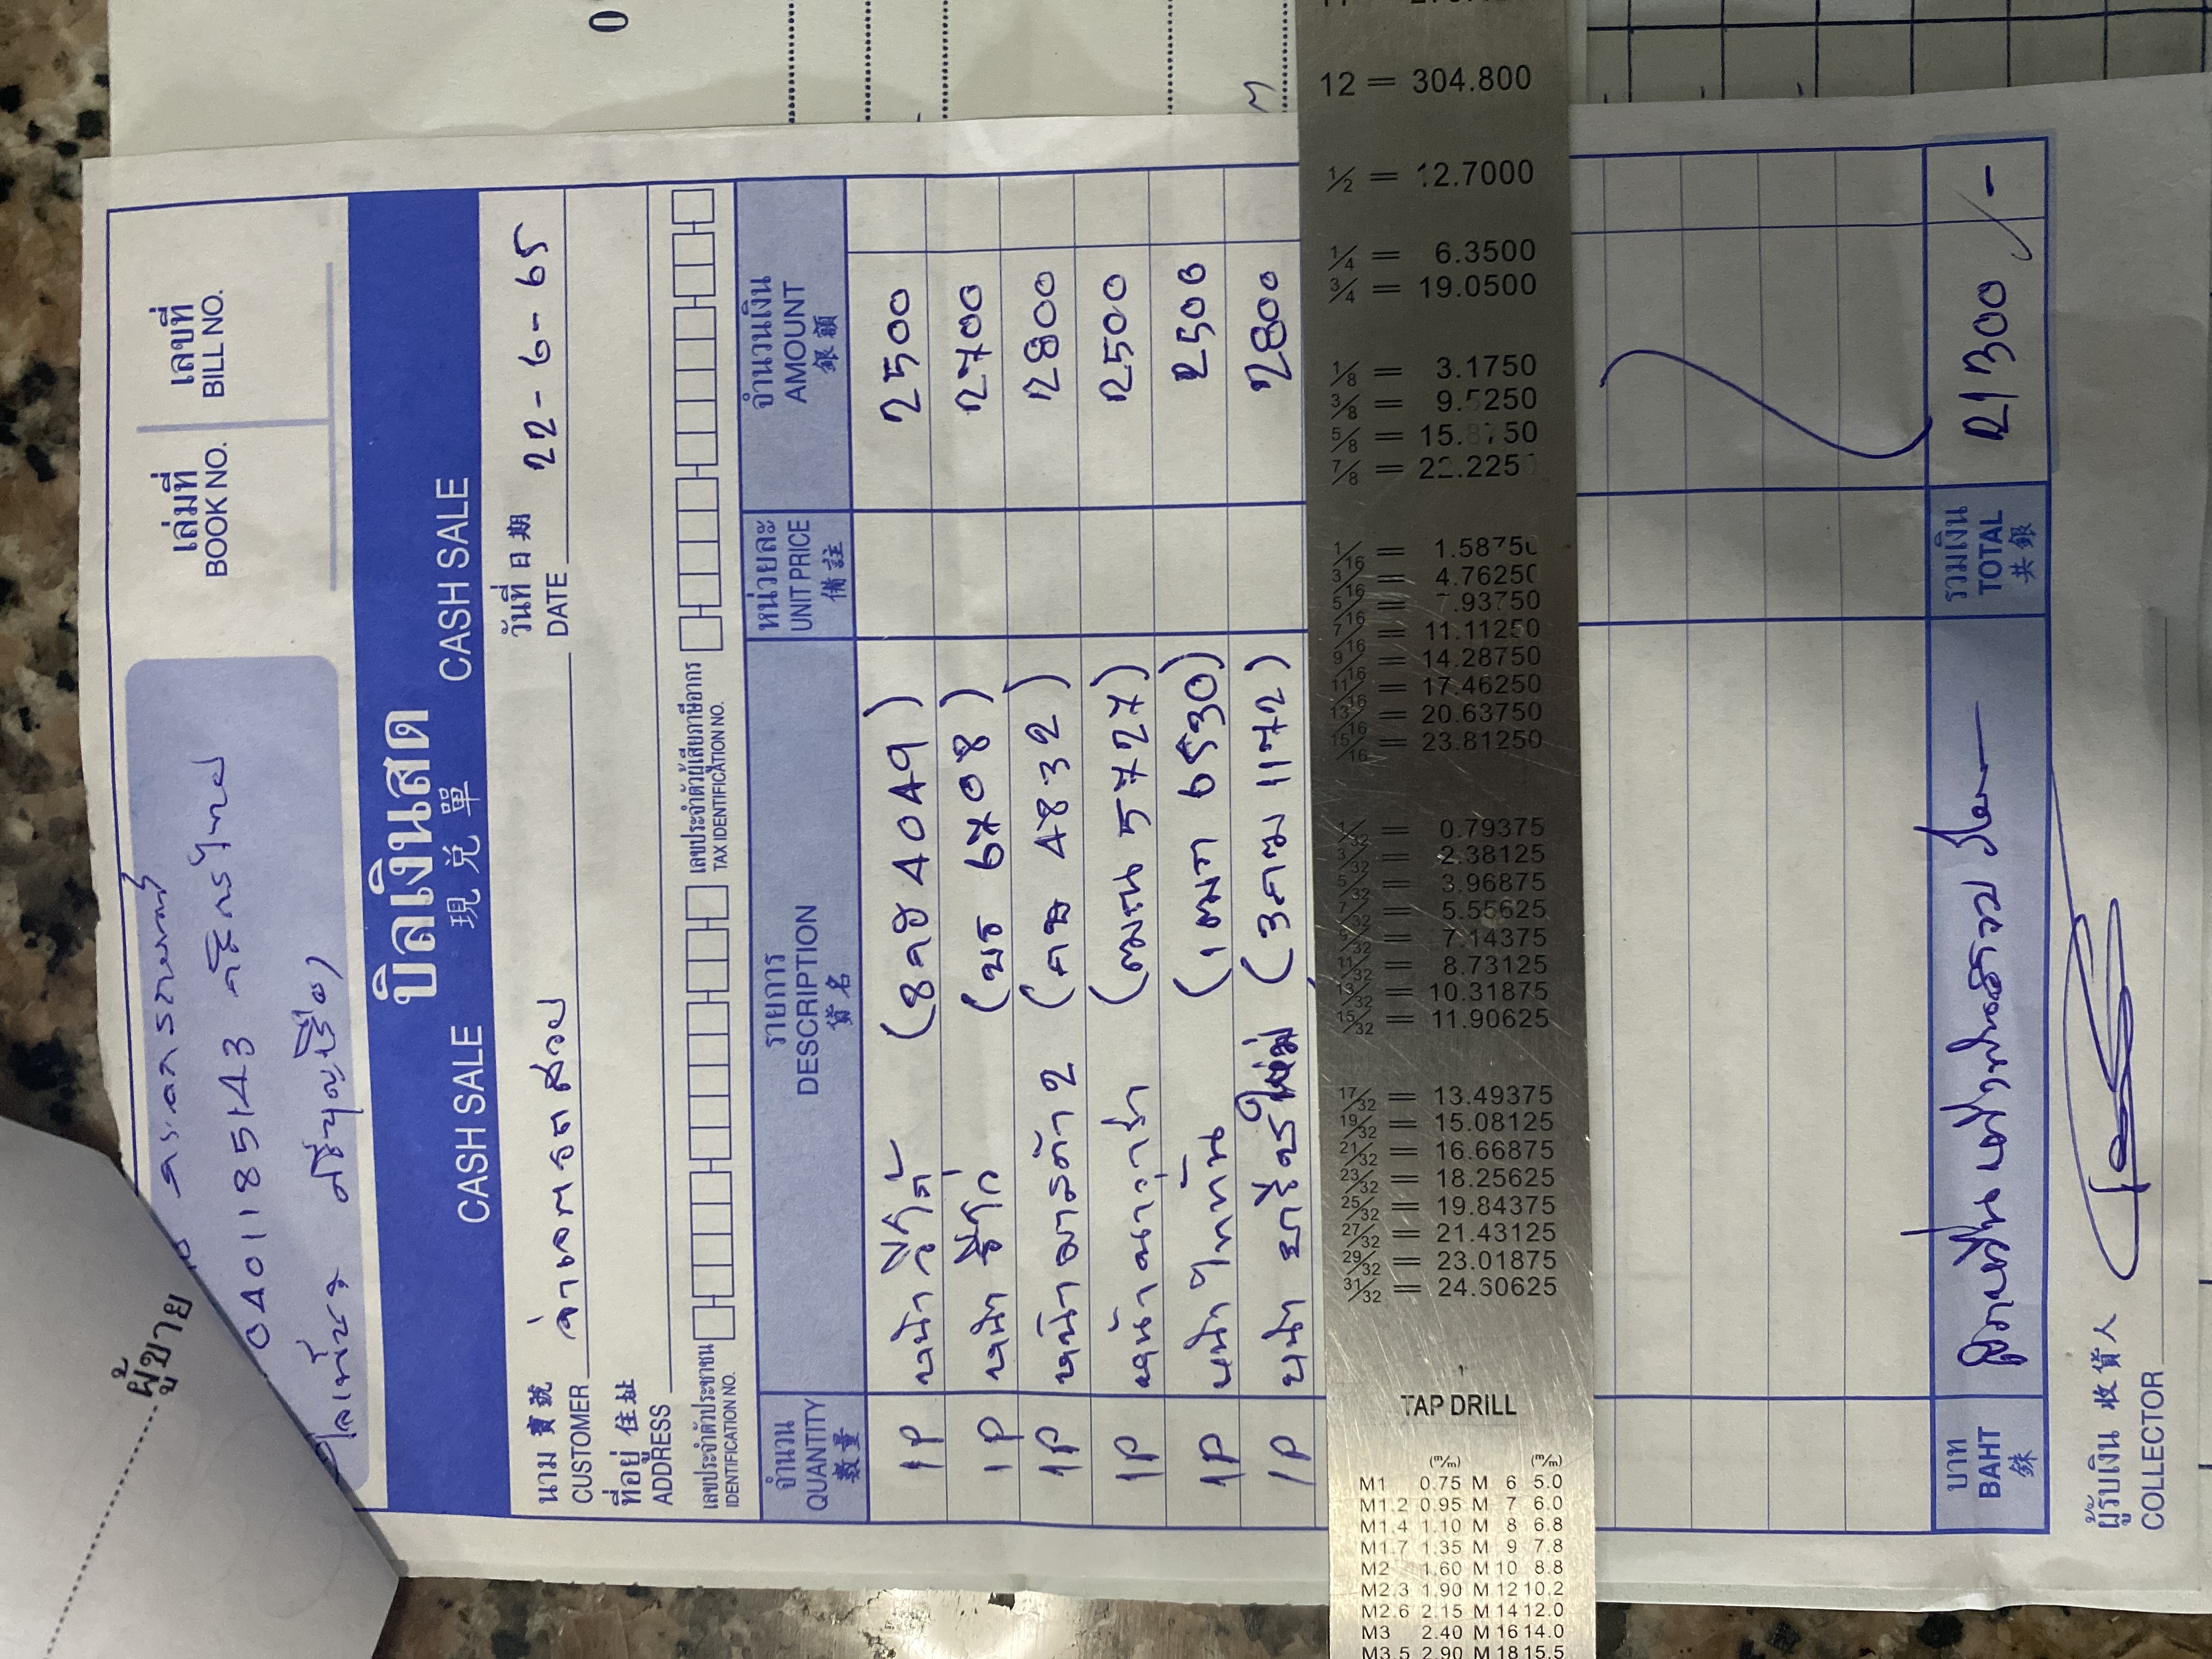 เล่มที่ เลขที่
BOOK NO. BILL NO.
0401185143
ผู้ขาย
บิลเงินสด
CASH SALE 現兌單 CASH SALE
นาม 寶號
CUSTOMER
วันที่ 日期 22-6-65
DATE
ที่อยู่ 住址
ADDRESS
เลขประจำตัวประชาชน
IDENTIFICATION NO.
เลขประจำตัวผู้เสียภาษีอากร
TAX IDENTIFICATION NO.
จำนวน รายการ หน่วยละ จำนวนเงิน
QUANTITY DESCRIPTION UNIT PRICE AMOUNT
數量 貨名 備註 銀額
1P หน้า วีโก้ (8กข 4049) 2500
1P หน้า วีโก้ (บร 6708) 2700
1P หน้า 2 4832) 2800
1P หน้า (ฒฌ 5727) 2500
1P หน้า ไททัน (1ฒก 6530) 2500
1P หน้า ยาริสใหม่ (3กฌ 1172) 2800
บาท รวมเงิน
BAHT TOTAL 21300/-
銖 共銀
ผู้รับเงิน 收貨人
COLLECTOR
12 = 304.800
1/2 = 12.7000
1/4 = 6.3500
3/4 = 19.0500
1/8 = 3.1750
3/8 = 9.5250
5/8 = 15.8750
7/8 = 22.225
1/16 = 1.5875
3/16 = 4.76250
5/16 = 7.93750
7/16 = 11.11250
9/16 = 14.28750
11/16 = 17.46250
13/16 = 20.63750
15/16 = 23.81250
1/32 = 0.79375
3/32 = 2.38125
5/32 = 3.96875
7/32 = 5.55625
9/32 = 7.14375
11/32 = 8.73125
13/32 = 10.31875
15/32 = 11.90625
17/32 = 13.49375
19/32 = 15.08125
21/32 = 16.66875
23/32 = 18.25625
25/32 = 19.84375
27/32 = 21.43125
29/32 = 23.01875
31/32 = 24.60625
TAP DRILL
(m/m) (m/m)
M1 0.75 M 6 5.0
M1.2 0.95 M 7 6.0
M1.4 1.10 M 8 6.8
M1.7 1.35 M 9 7.8
M2 1.60 M 10 8.8
M2.3 1.90 M 12 10.2
M2.6 2.15 M 14 12.0
M3 2.40 M 16 14.0
M3.5 2.90 M 18 15.5